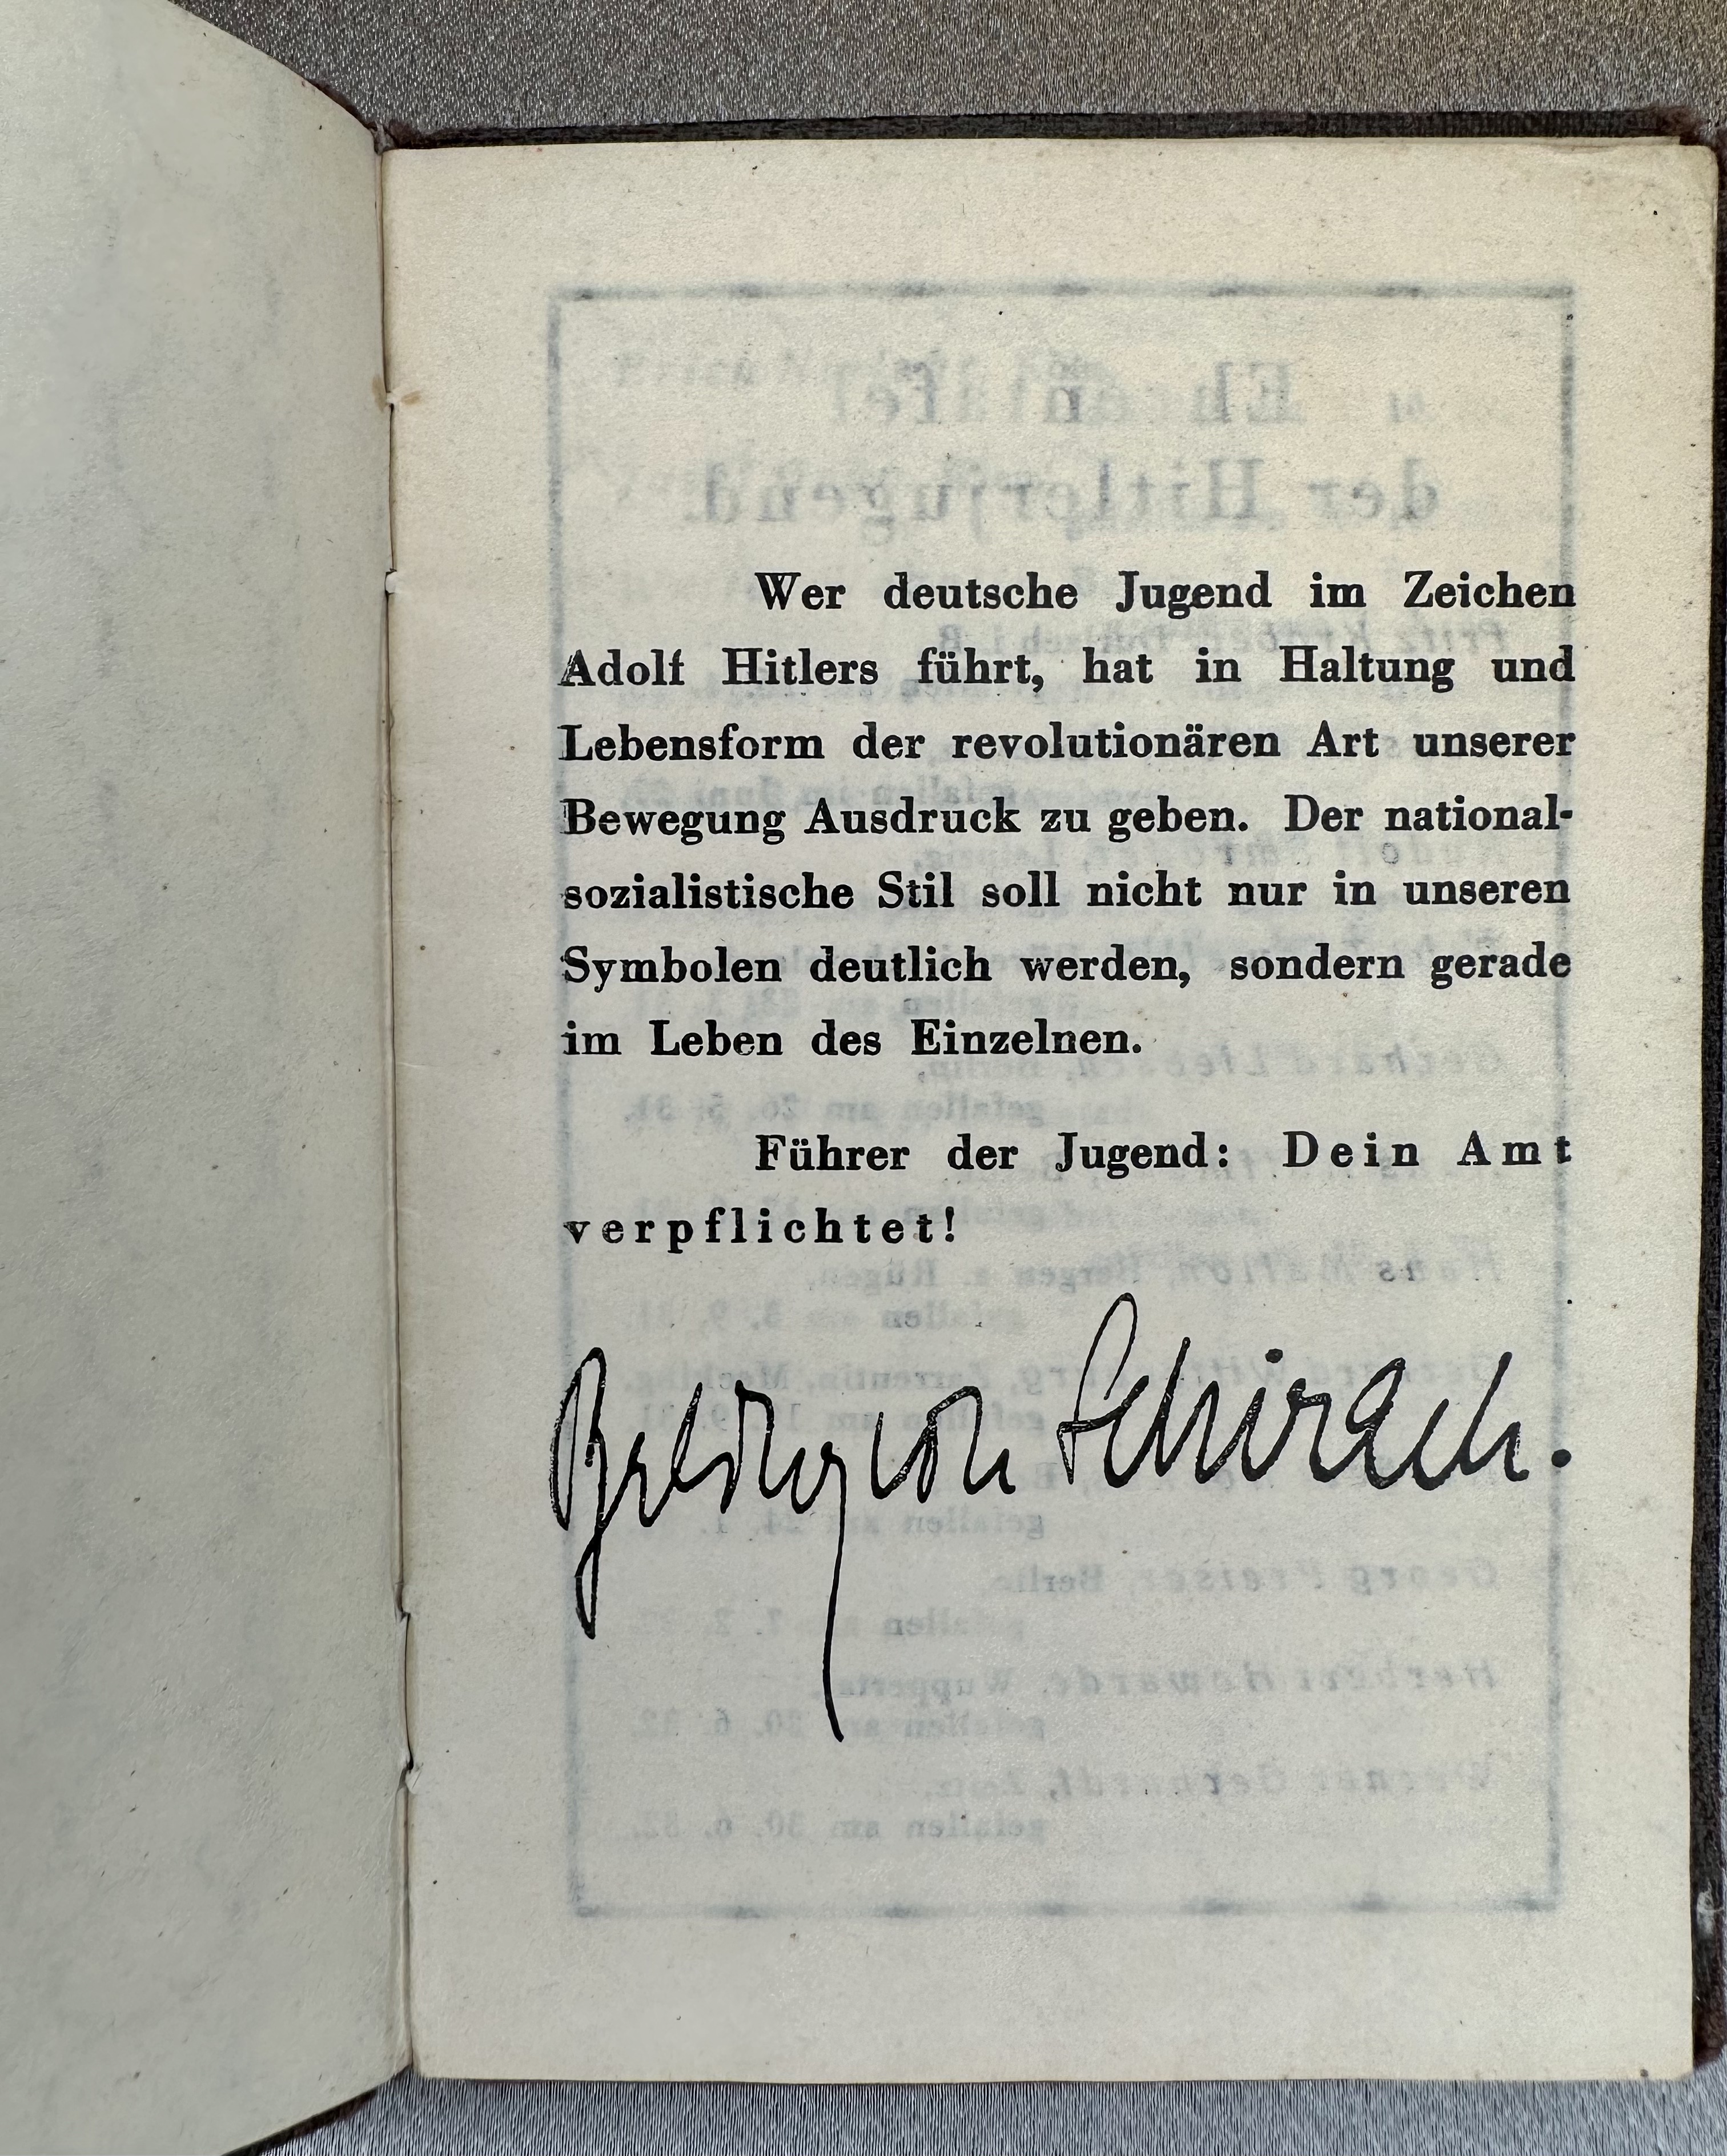 Wer deutsche Jugend im Zeichen
Adolf Hitlers führt, hat in Haltung und
Lebensform der revolutionären Art unserer
Bewegung Ausdruck zu geben. Der national-
sozialistische Stil soll nicht nur in unseren
Symbolen deutlich werden, sondern gerade
im Leben des Einzelnen.
Führer der Jugend: Dein Amt
verpflichtet!
Baldur von Schirach.